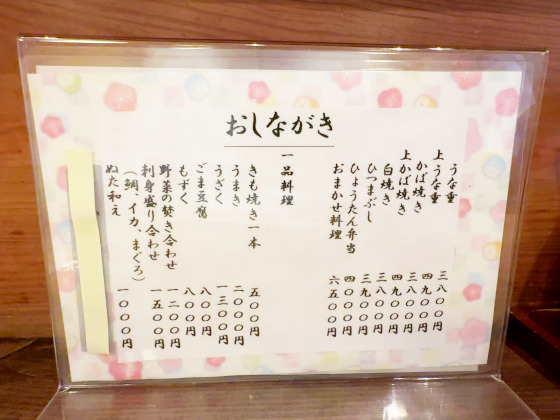 おしながき
うな重 三八〇〇円
上うな重 四九〇〇円
かば焼き 三八〇〇円
上かば焼き 四九〇〇円
白焼き 三八〇〇円
ひつまぶし 三九〇〇円
ひょうたん弁当 四〇〇〇円
おまかせ料理 六五〇〇円
一品料理
きも焼き一本 五〇〇円
うまき 二〇〇〇円
うざく 一三〇〇円
ごま豆腐 八〇〇円
もずく 八〇〇円
野菜の焚き合わせ 一二〇〇円
刺身盛り合わせ 一五〇〇円
（鯛、イカ、まぐろ）
ぬた和え 一〇〇〇円